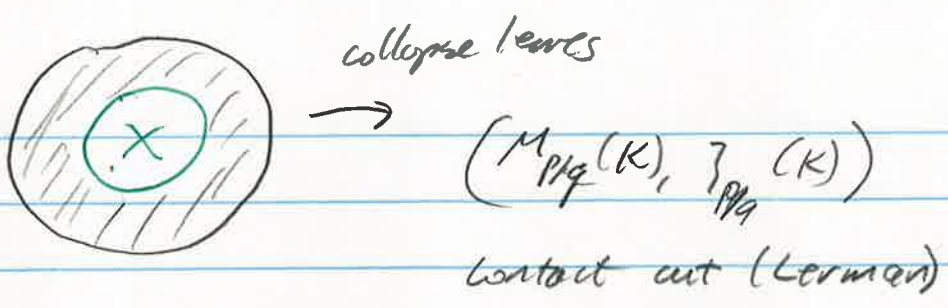 collapse leaves
X
(M_{p/q}(K), ξ_{p/q}(K))
contact cut (Lerman)